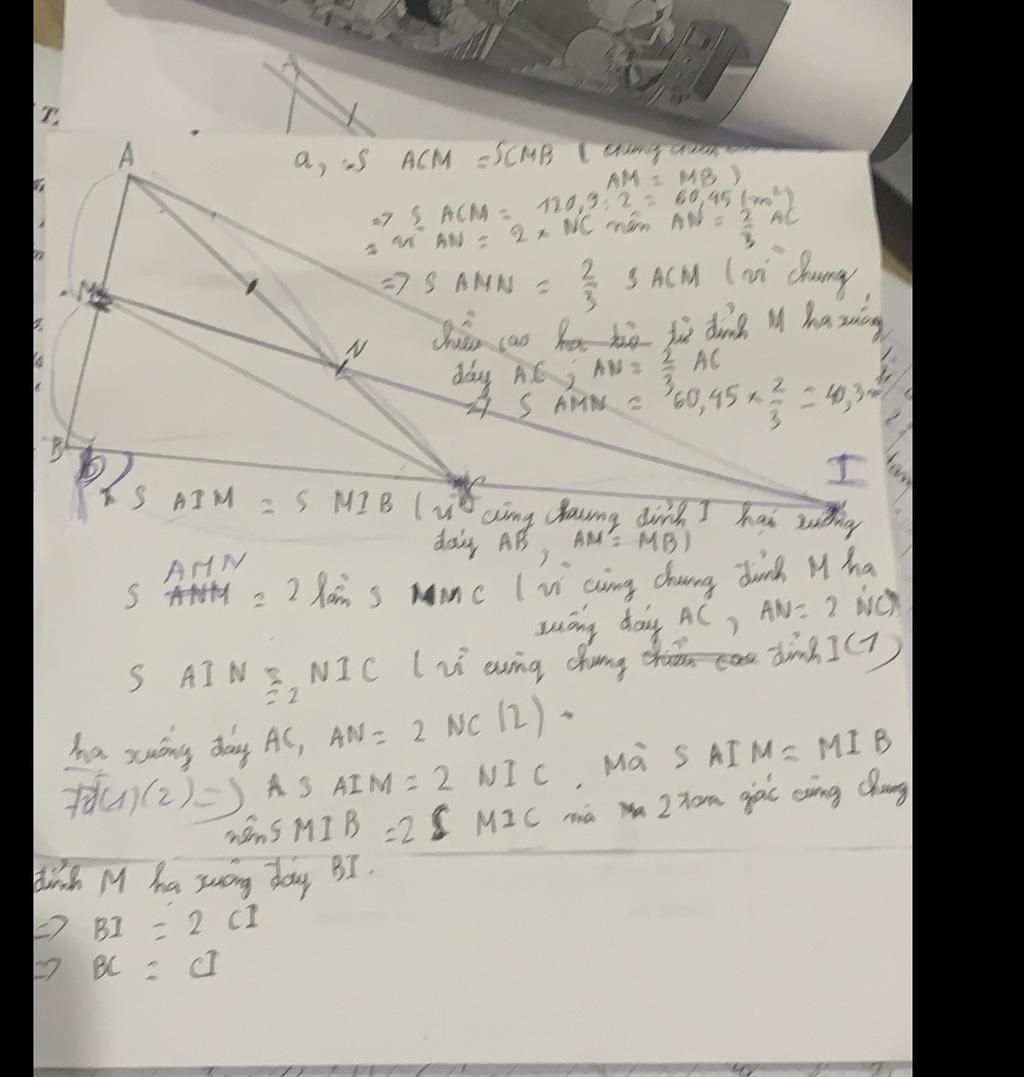 T.
A
a, S ACM = SCMB (
AM = MB)
=> S ACM = 120,9 : 2 = 60,45 (m²)
= vì AN = 2 x NC nên AN = 2/3 AC
=> S AMN = 2/3 S ACM (vì chung
chiều cao từ đỉnh M hạ xuống
đáy AC ; AN = 2/3 AC
=> S AMN = 60,45 x 2/3 = 40,3
M
N
B
C
I
b)
S AIM = S MIB (vì cũng chung đỉnh I hạ xuống
đáy AB, AM = MB)
AMN
S ANM = 2 lần S MMC (vì cũng chung đỉnh M hạ
xuống đáy AC, AN = 2 NC)
S AIN = 2 NIC (vì cũng chung chiều cao đỉnh I (1)
hạ xuống đáy AC, AN = 2 NC (2)
Từ (1) (2) => S AIM = 2 NIC. Mà S AIM = MIB
nên S MIB = 2 S MIC mà 2 tam giác cũng chung
đỉnh M hạ xuống đáy BI.
=> BI = 2 CI
=> BC = CI